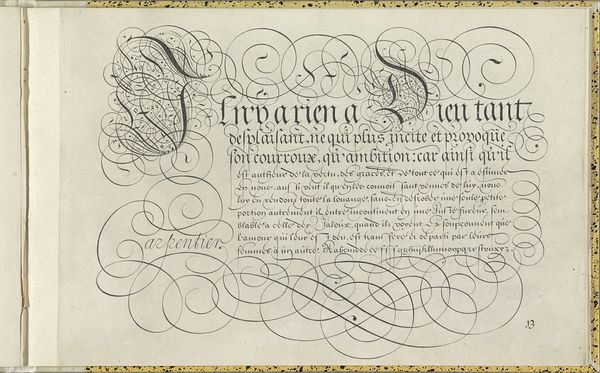 Il n'y a rien a Dieu tant
desplaisant, ne qui plus incite et provoque
son courroux, qu'ambition: car ainsi qu'il
est autheur de la vertu, des graces, et de tout ce qui est a estimer
en nous: aussi veut il qu'en les connoissant venues de luy, nous
luy en rendons toute la louange, sans en desrober une seule petite
portion autrement il entre incontinent en une telle fureur, semblable
a celle des Jaloux, quand ils voyent, ou soupçonnent que
l'amour qui leur est deu, est transferé et departi par leurs
femmes a un autre.
Carpentier.
13